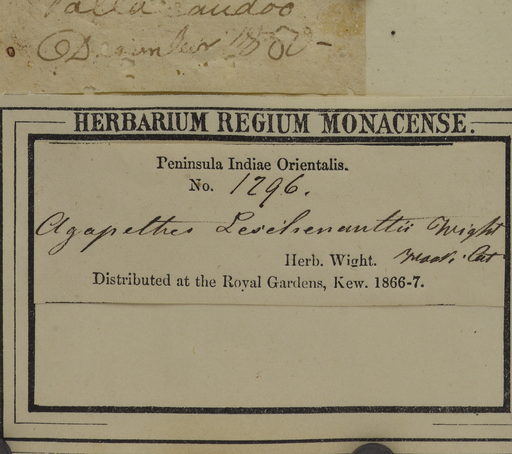 December 18
HERBARIUM REGIUM MONACENSE.
Peninsula Indiae Orientalis.
No. 1296.
Agapethes Leschenaultii Wight
Herb. Wight. Cat
Distributed at the Royal Gardens, Kew. 1866-7.